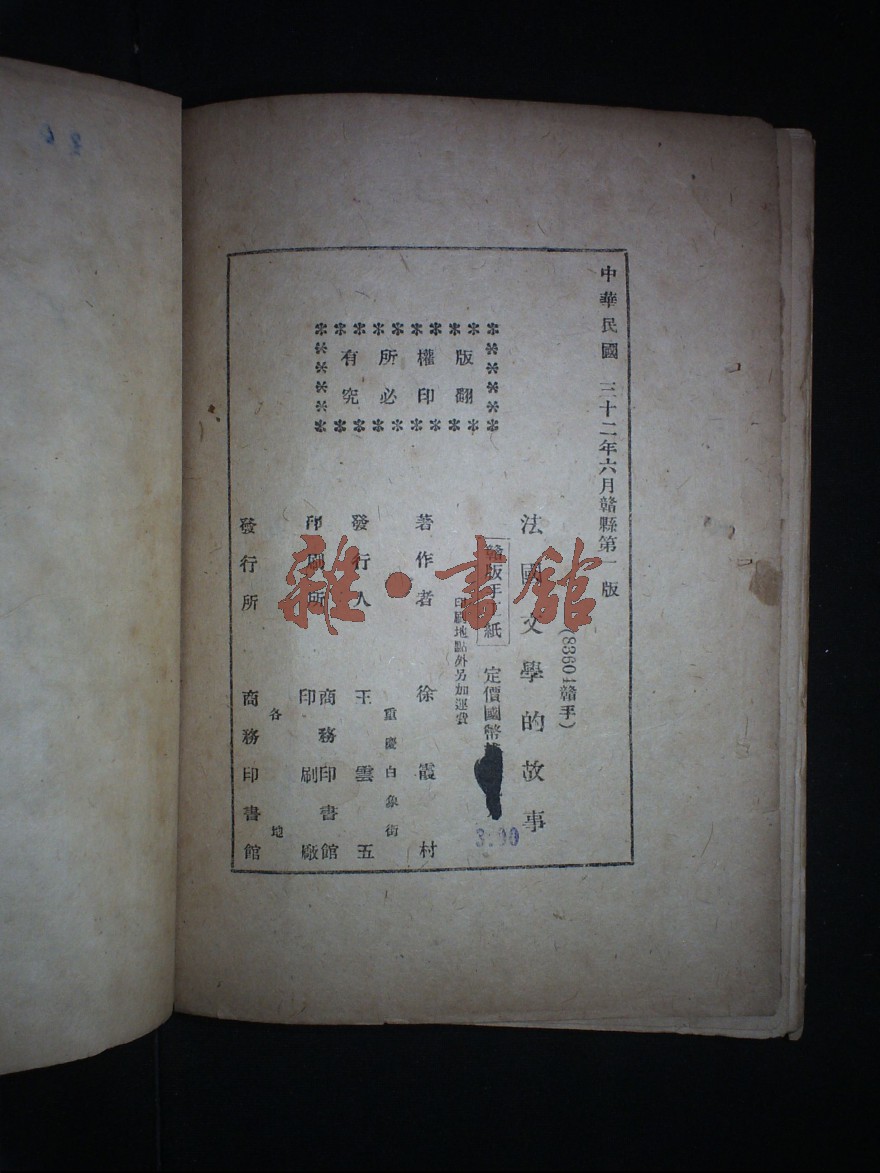 中華民國三十二年六月贛縣第一版
(83604贛手)
法國文學的故事
贛版手工紙 定價國幣
3.00
印刷地點外另加運費
版權所有
翻印必究
著作者 徐霞村
重慶白象街
發行人 王雲五
印刷所 商務印書館印刷廠
各地
發行所 商務印書館
雜·書館